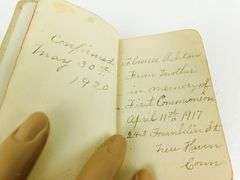 Confirmed
May 30th
1920
Ashton
From Mother
in memory of
First Communion
April 11th 1917
Franklin St
New Haven
Conn